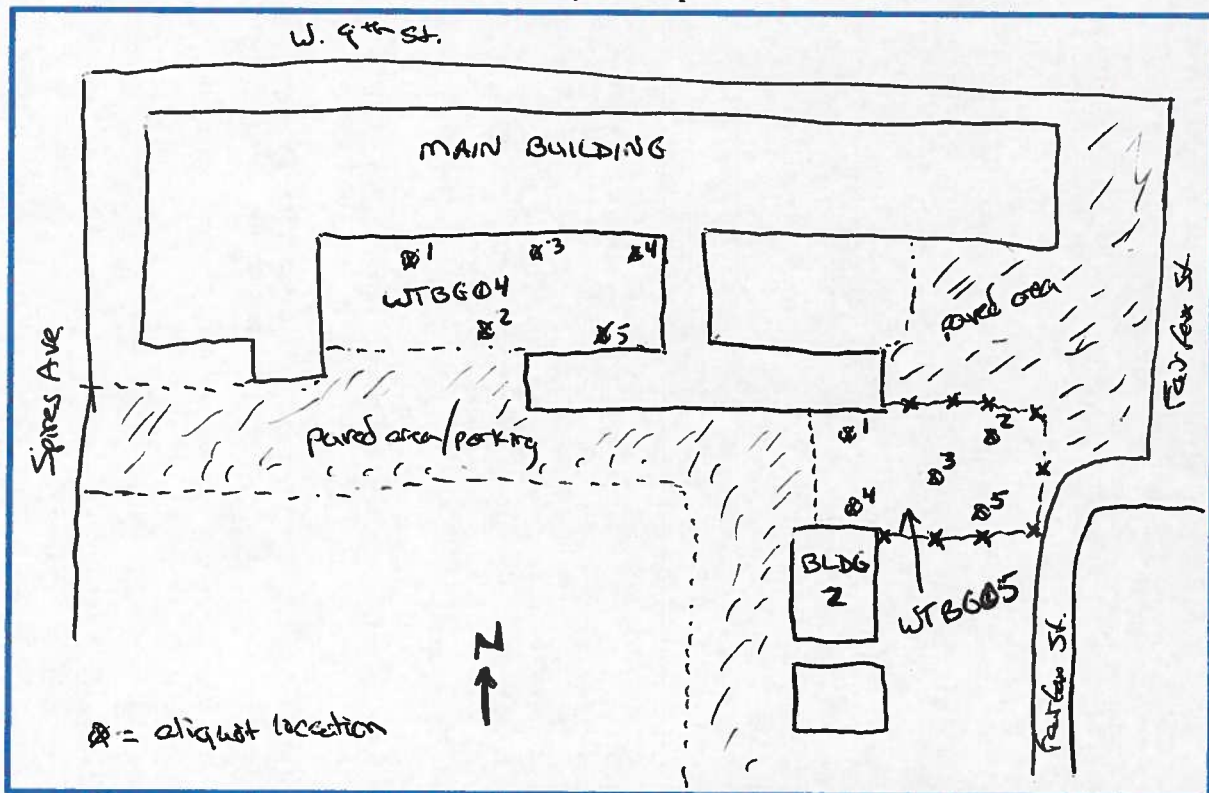 W. 9th St.
MAIN BUILDING
1
3
4
WTBGØ4
2
5
paved area
Spires Ave
Fairfax St.
paved area/parking
1
2
3
4
5
BLDG
2
WTBGØ5
N
Fairfax St.
= aliquot location